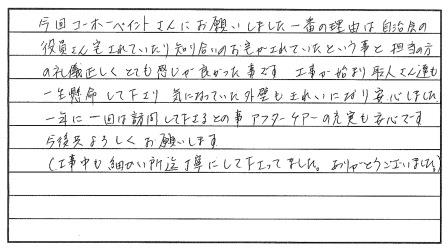 今回コーホーペイントさんにお願いしました一番の理由は自治会の
役員さん宅されていたり知り合いのお宅がされていたという事と担当の方
の礼儀正しくとても感じが良かった事です 工事が始まり職人さん達も
一生懸命して下さり 気になっていた外壁もきれいになり安心しました
一年に一回は訪問して下さるとの事アフターケアーの充実も安心です
今後共よろしくお願いします
(工事中も細かい所迄丁寧にして下さってました。ありがとうございました)